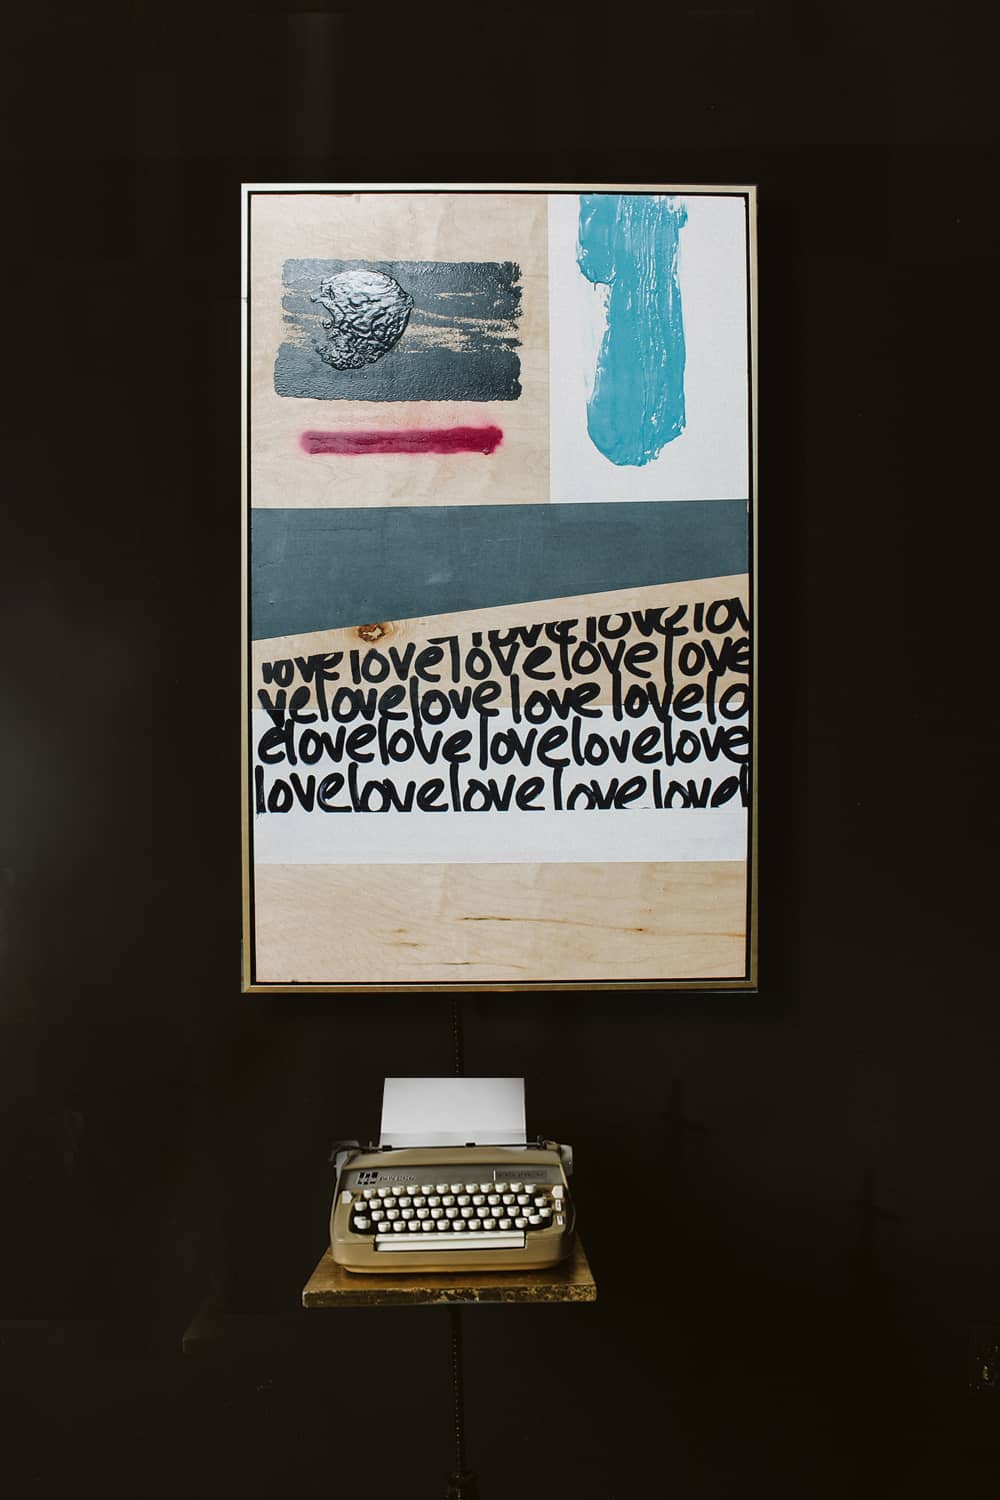 love love lo
love love love love love
ve love love love love lo
e love love love love love
love love love love love